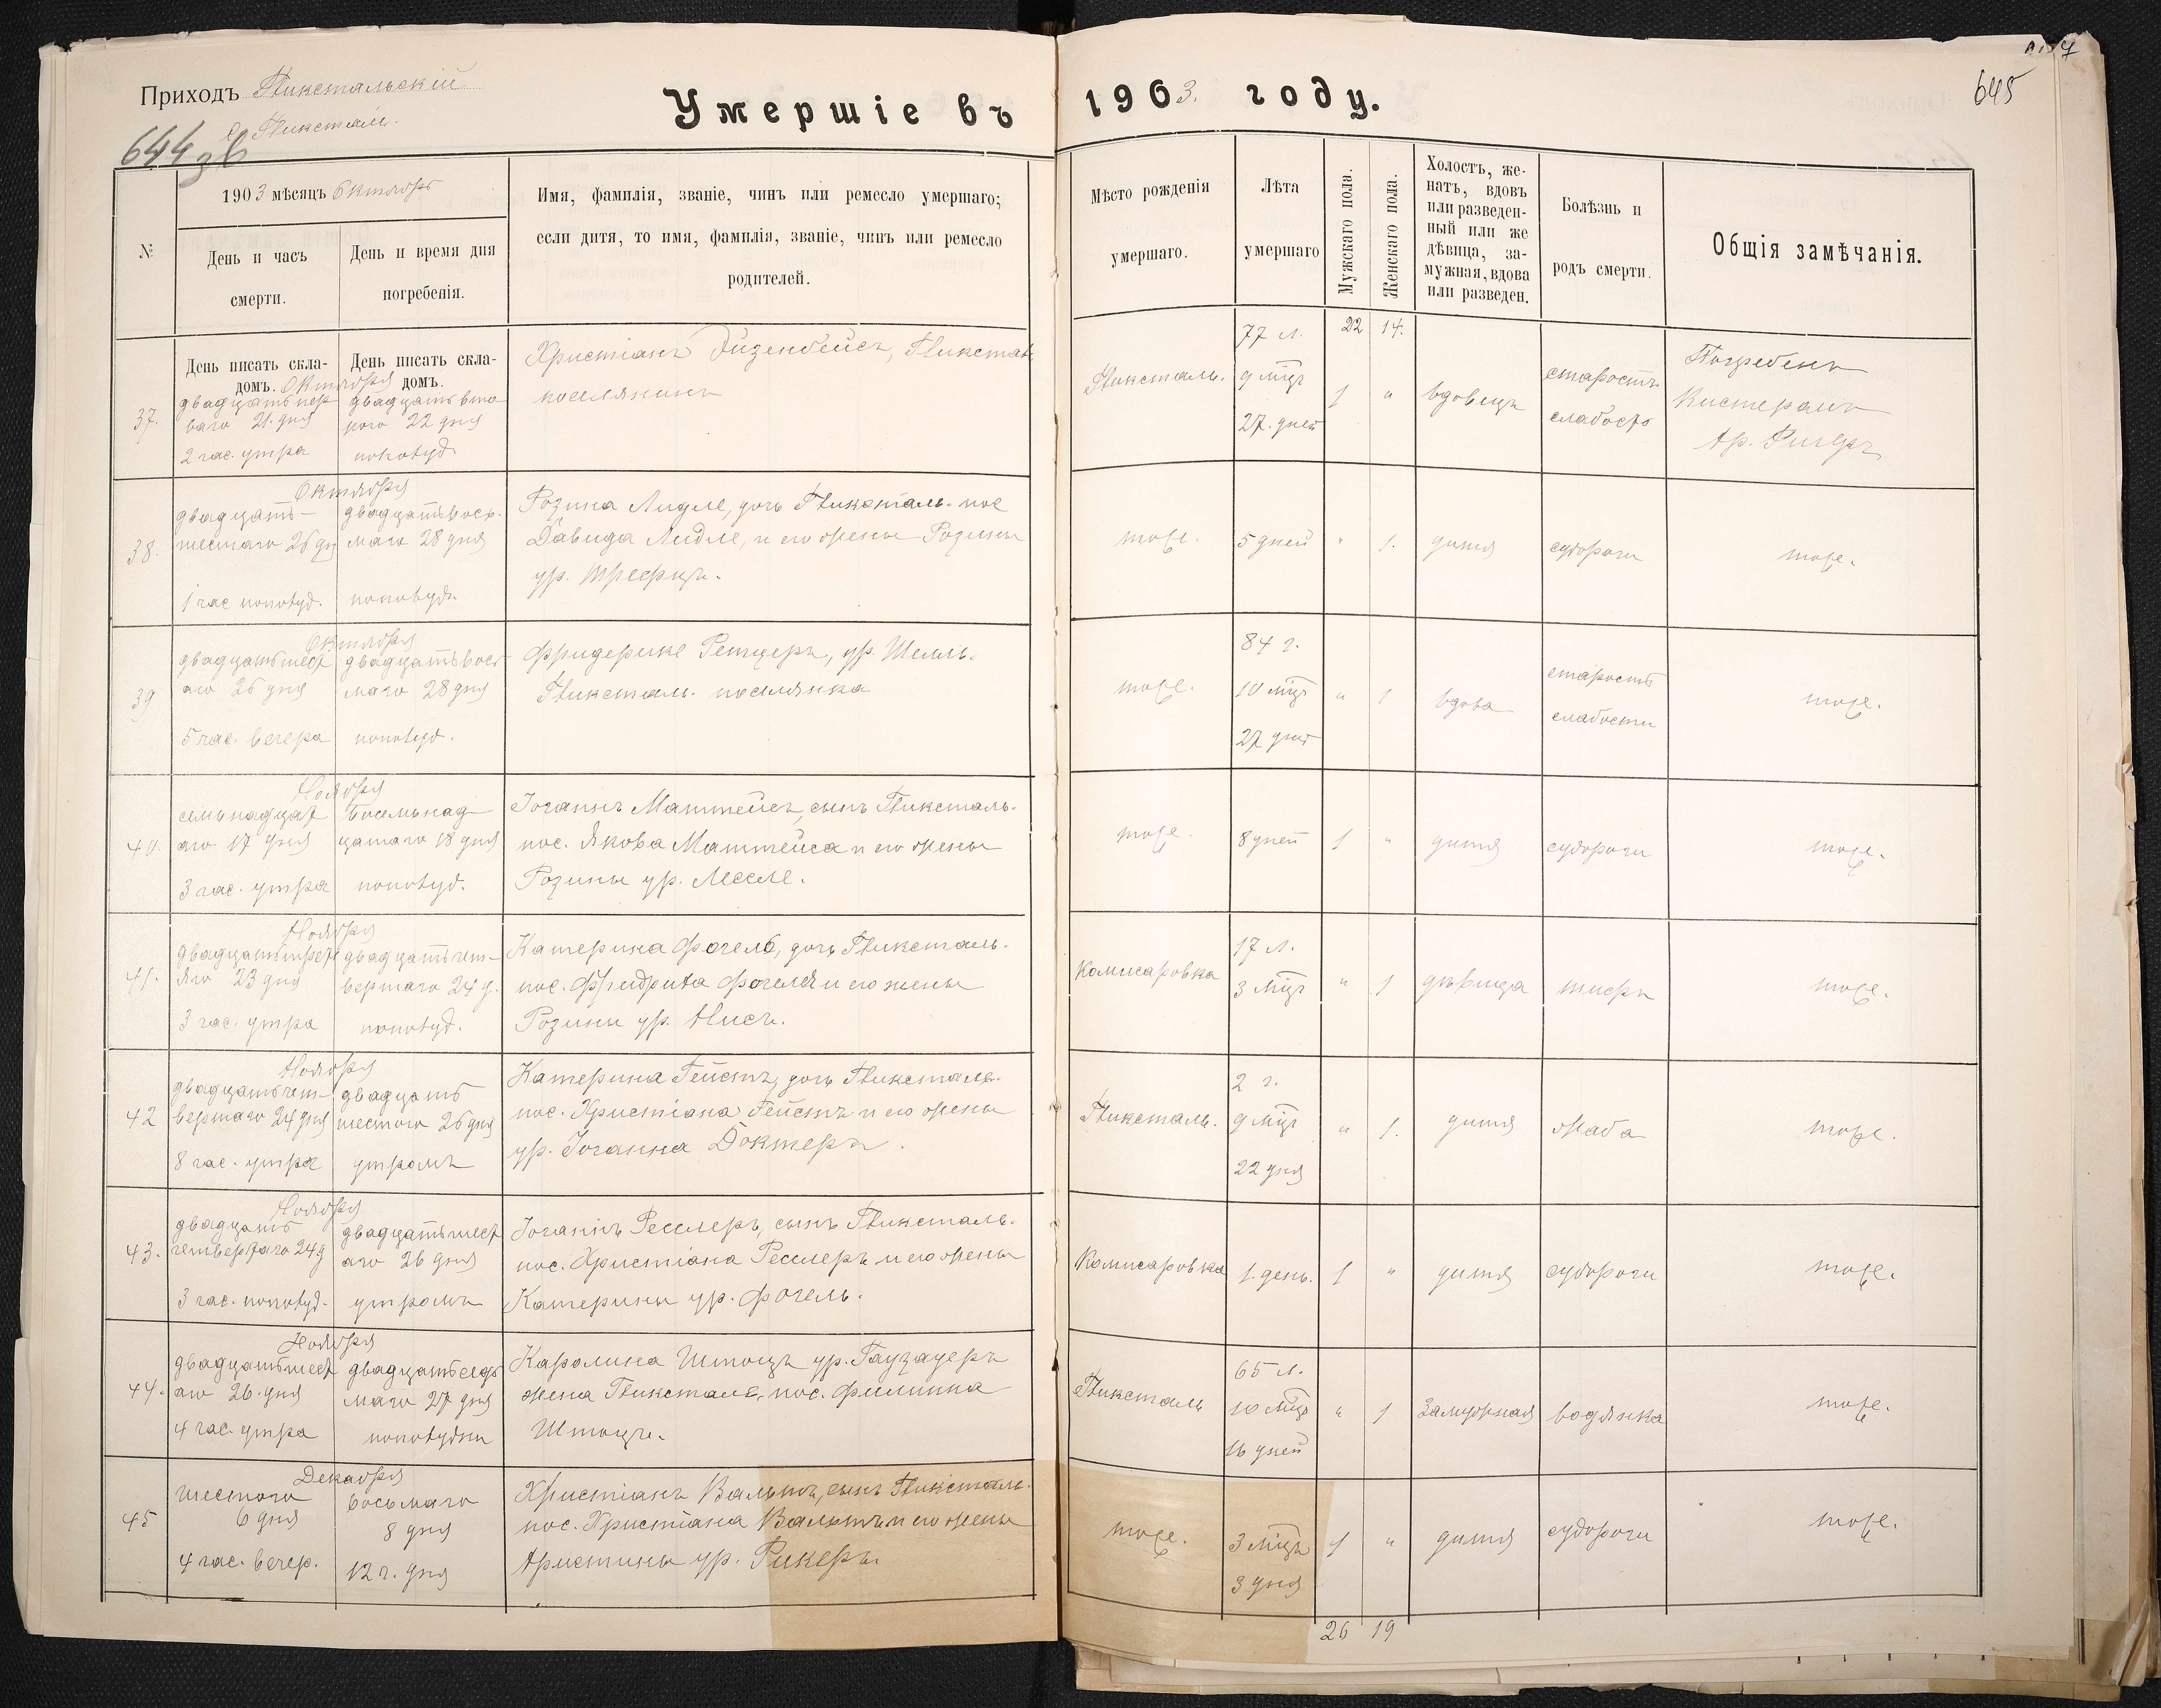 Приходъ Глюкстальскій
с. Глюксталь.
644 зв
Умершіе въ 1903. году.
645
№
1903 мѣсяцъ Октябрь
День и часъ смерти.
День и время дня погребенія.
Имя, фамилія, званіе, чинъ или ремесло умершаго;
если дитя, то имя, фамилія, званіе, чинъ или ремесло
родителей.
Мѣсто рожденія
умершаго.
Лѣта
умершаго
Мужскаго пола.
Женскаго пола.
Холостъ, же-
натъ, вдовъ
или разведен-
ный или же
дѣвица, за-
мужная, вдова
или разведен.
Болѣзнь и
родъ смерти.
Общія замѣчанія.
День писать скла-
домъ. Октября
День писать скла-
домъ.
37.
двадцатьпер
ваго 21. дня
2 час. утра
двадцатьвто
рого 22 дня
пополуд.
Христіанъ Эйзенбейсъ, Глюксталь
поселянинъ
Глюксталь.
77 л.
9 мцъ
27. дней
22 14.
1 "
вдовецъ
старость
слабость
Погребенъ
Кистеромъ
38.
Октября
двадцать-
шестаго 26 дн
1 час пополуд.
двадцатьвось.
маго 28 дня
пополуд.
Розина Лидле, дочь Глюксталь. пос
Давида Лидле, и его жены Розины
ур. Трефцъ.
тоже.
5 дней
" 1.
дитя
судороги
тоже.
39
Октября
двадцатьшест
аго 26 дня
5 час. вечера
двадцатьвось
маго 28 дня
пополуд.
Фридерике Ретцеръ, ур. Шелль.
Глюксталь. поселянка
тоже.
84 г.
10 мцъ
27 дней
" 1
вдова
старость
слабости
тоже.
40.
Ноября
семьнадцат
аго 17 дня
3 час. утра
Восемьнад
цатаго 18 дня
пополуд.
Іоганнъ Маттейсъ, сынъ Глюксталь.
пос. Якова Маттейса и его жены
Розины ур. Мессле.
тоже.
8 дней
1 "
дитя
судороги
тоже.
41.
Ноября
двадцатьтрет
яго 23 дня
3 час. утра
двадцатьчет-
вертаго 24 д.
пополуд.
Катерина Фогель, дочь Глюксталь.
пос. Фридриха Фогеля и его жены
Розины ур. Нисъ.
Комисаровка
17 л.
3 мцъ
" 1
дѣвица
тифъ
тоже.
42
Ноября
двадцатьчет-
вертаго 24 дня
8 час. утра
двадцать
шестого 26 дня
утромъ
Катерина Гейстъ, дочь Глюксталь.
пос. Христіана Гейстъ и его жены
ур. Іоганна Доктеръ.
Глюксталь.
2 г.
9 мцъ
22 дня
" 1.
дитя
жаба
тоже.
43.
Ноября
двадцать
четвертаго 24 д
3 час. пополуд.
двадцатьшест
аго 26 дня
утромъ
Іоганнъ Ресслеръ, сынъ Глюксталь.
пос. Христіана Ресслеръ и его жены
Катерины ур. Фогель.
Комисаровка
1. день.
1 "
дитя
судороги
тоже.
44.
Ноября
двадцатьшест
аго 26. дня
4 час. утра
двадцатьседь
маго 27 дня
пополудни
Каролина Штоцъ ур. Гаузауеръ
жена Глюксталь, пос. Филиппа
Штоцъ.
Глюксталь
65 л.
10 мцъ
16 дней
" 1
Замужная
водянка
тоже.
45
Декабря
шестого
6 дня
4 час. вечер.
восьмаго
8 дня
12 ч. дня
Христіанъ Вальтъ, сынъ Глюксталь.
пос. Христіана Вальтъ и его жены
Христины ур. Рикеръ.
тоже.
3 мцъ
3 дня
1 "
дитя
судороги
тоже.
26 19